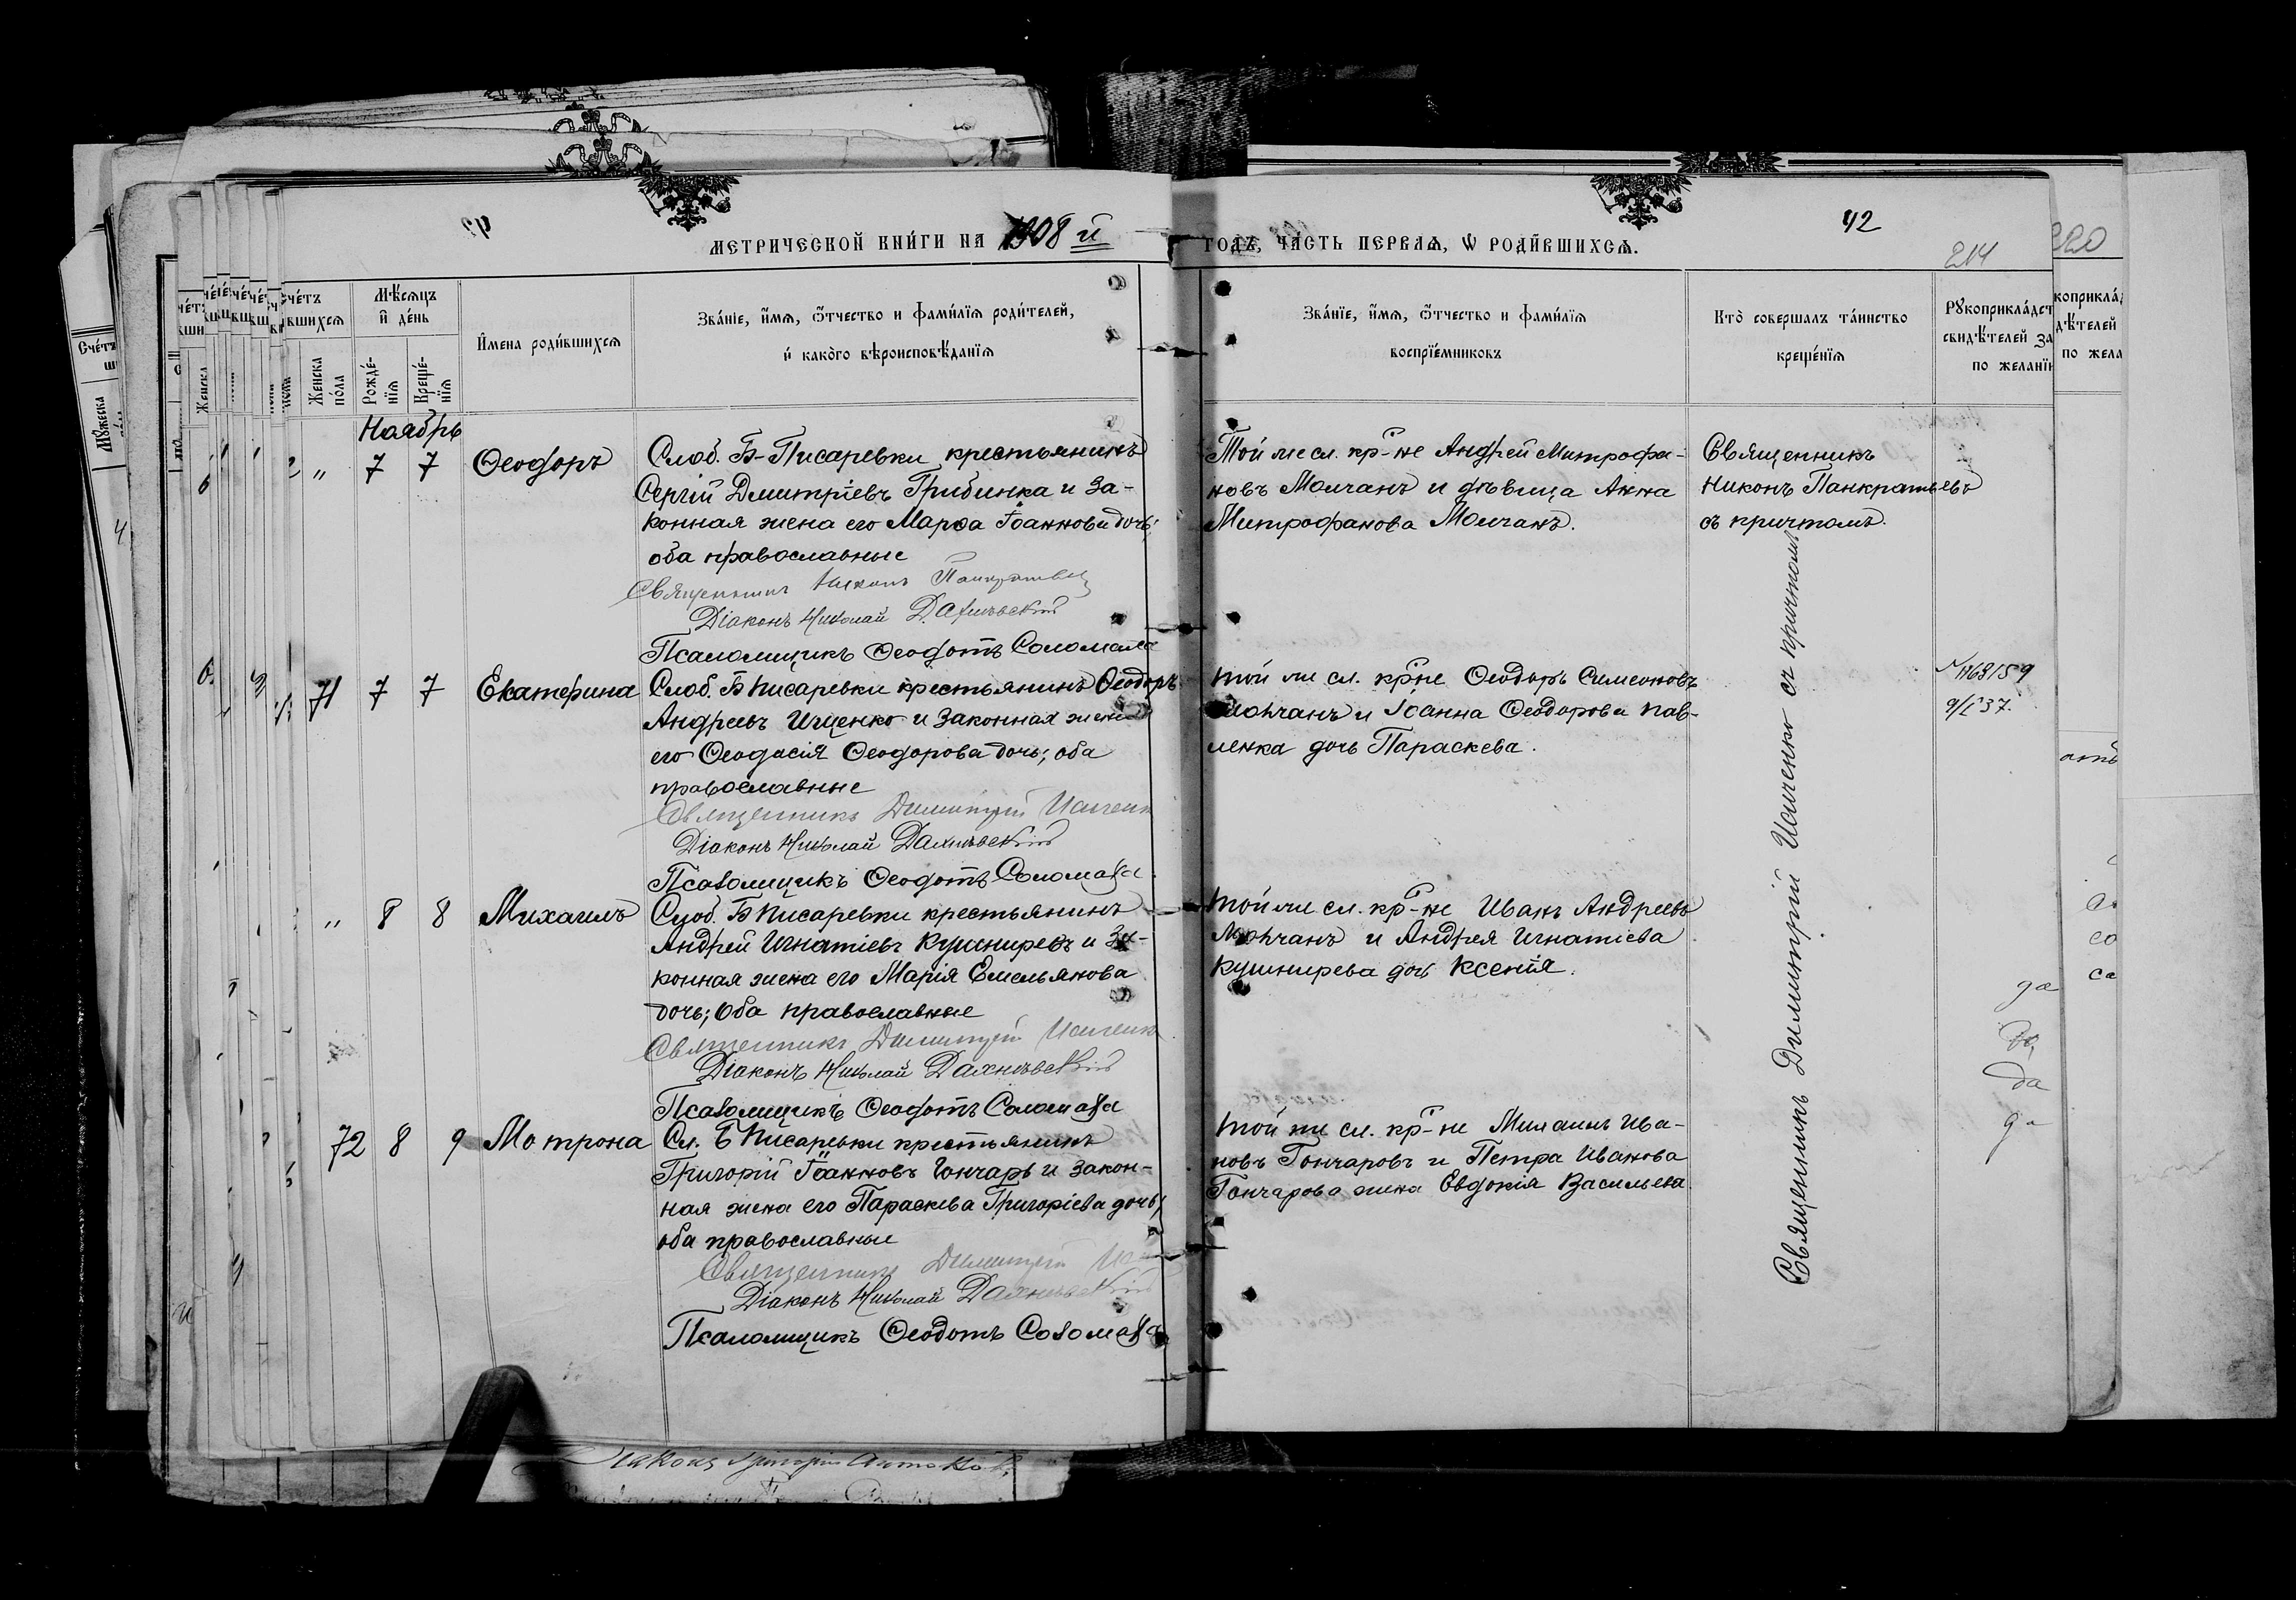 МЕТРИЧЕСКОЙ КНИ́ГИ НА 1908 й
ГОДЪ, ЧАСТЬ ПЕРВАѦ, Ѡ РОДИ́ВШИХСѦ.
42
214
220
Сче́тъ
Мѣ́сѧцъ
и҆ де́нь
Же́нска
по́ла
Рожде́-
нїѧ
Креще́-
нїѧ
И҆мена роди́вшихсѧ
Зва́нїе, и҆́мѧ, ѻ҆́тчество и фами́лїѧ роди́телей,
и҆ како́го вѣроисповѣ́данїѧ
Зва́нїе, и҆́мѧ, ѻ҆́тчество и фами́лїѧ
воспрїе́мниковъ
Кто̀ соверша́лъ та́инство
креще́нїѧ
Рꙋкоприкла́дст
свидѣ́телей за
по жела́нїю
Ноябрь
" 7 7 Ѳеодоръ
Слоб. Б-Писаревки крестьянинъ
Сергій Дмитріевъ Грибинка и за-
конная жена его Марѳа Іоаннова дочь;
оба православные
Священникъ Никонъ Панкратьевъ
Діаконъ Николай
Псаломщикъ Ѳеодотъ Соломаха
Той же сл. кр-не Андрей Митрофа-
новъ Молчанъ и дѣвица Анна
Митрофанова Молчанъ.
Священникъ
Никонъ Панкратьевъ
съ причтомъ.
71 7 7 Екатерина
Слоб. Б Писаревки крестьянинъ Ѳеодоръ
Андреевъ Ищенко и законная жена
его Ѳеодосія Ѳеодорова дочь; оба
православные
Священникъ Димитрій
Діаконъ Николай
Псаломщикъ Ѳеодотъ Соломаха
той же сл. кр-не Ѳеодоръ Симеоновъ
Молчанъ и Іоанна Ѳеодорова Пав-
ленка дочь Параскева.
" 8 8 Михаилъ
Слоб. Б Писаревки крестьянинъ
Андрей Игнатіевъ Кушниревъ и за-
конная жена его Марія Емельянова
дочь; оба православные
Священникъ Димитрій
Діаконъ Николай
Псаломщикъ Ѳеодотъ Соломаха
той же сл. кр-не Иванъ Андреевъ
Молчанъ и Андрея Игнатіева
Кушнирева дочь Ксенія.
72 8 9 Мотрона
Сл. Б Писаревки крестьянинъ
Григорій Іоанновъ Гончаръ и закон-
ная жена его Параскева Григоріева дочь;
оба православные
Священникъ Димитрій
Діаконъ Николай
Псаломщикъ Ѳеодотъ Соломаха
той же сл. кр-не Михаилъ Ива-
новъ Гончаровъ и Петра Иванова
Гончарова жена Евдокія Васильева.
Священникъ Димитрій съ причтомъ
да
да